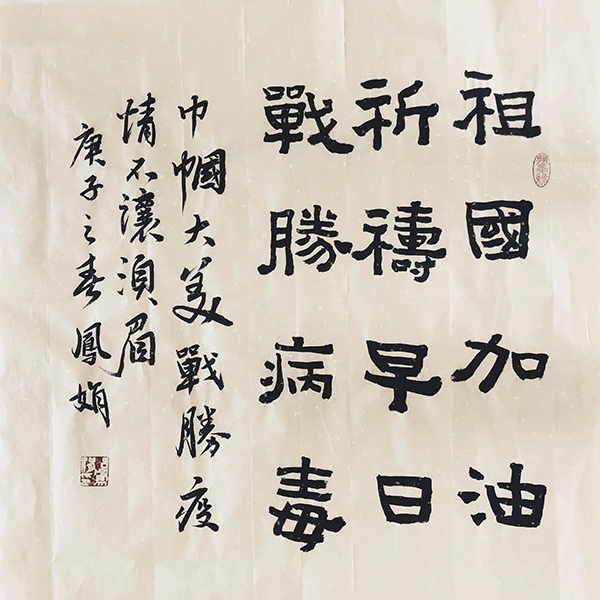 祖國加油
祈禱早日
戰勝病毒
巾帼大美戰勝疫
情不讓須眉
庚子之春鳳娟